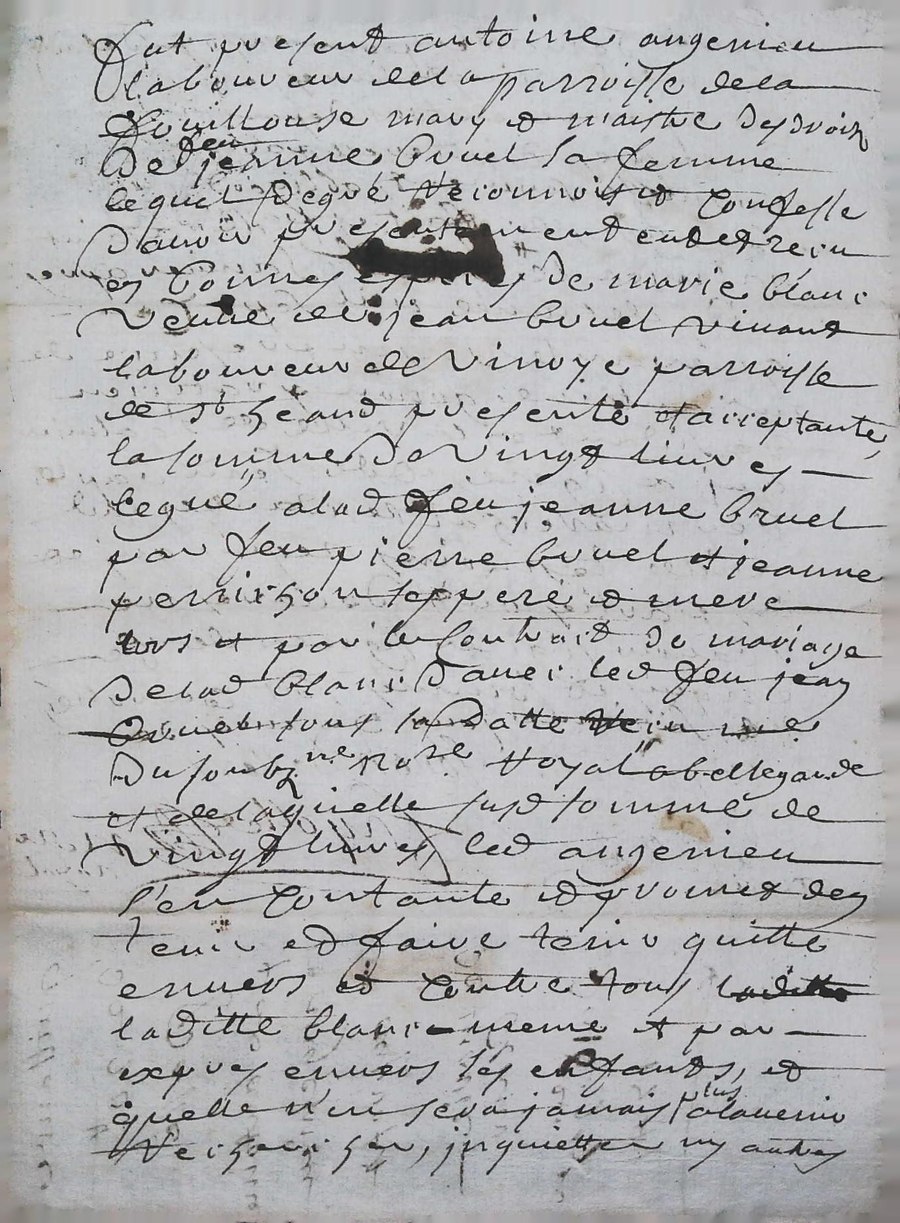 fut present antoine angenieu
laboureur de la parroisse de la
fouillouse mary et maistre des droits
de feu jeanne bruel sa femme
lequel de gré reconnoist et confesse
d'avoir presentement eu et receu
en bonnes especes de marie blanc
veuve de jean bruel vivant
laboureur de vinoye parroisse
de st heand presente et acceptante
la somme de vingt livres
legué a lad feu jeanne bruel
par feu pierre bruel et jeanne
perrichon ses pere et mere
lors et par le contraict de mariage
de lad blanc d'avec led feu jean
bruel sous sa datte receu me
du soubz ne no re royal a bellegarde
et de laquelle susd somme de
vingt livres, led angenieu
s'en contante et promet d'en
tenir et faire tenir quitte
envers et contre tous
laditte blanc meme et par
exprès envers ses enfants, et
quelle n'en sera jamais plus a lavenir
recherchée, inquiettée ny autres